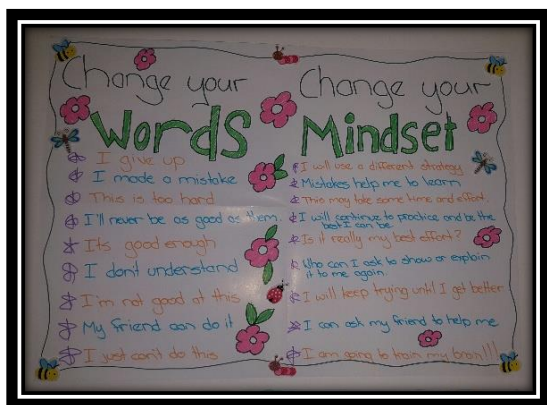 Change your
Words
I give up
I made a mistake
This is too hard
I'll never be as good as them.
Its good enough
I don't understand
I'm not good at this
My friend can do it
I just can't do this
Change your
Mindset
I will use a different strategy
Mistakes help me to learn
This may take some time and effort.
I will continue to practice and be the
best I can be.
Is it really my best effort?
Who can I ask to show or explain
it to me again.
I will keep trying until I get better
I can ask my friend to help me
I am going to train my brain!!!